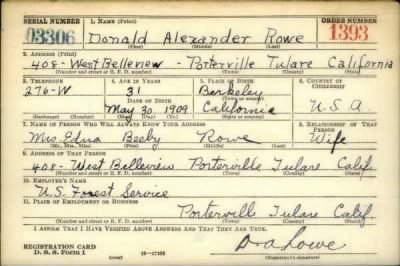 SERIAL NUMBER 1. NAME (Print) ORDER NUMBER
03306 Donald Alexander Rowe 1393
(First) (Middle) (Last)
2. ADDRESS (Print)
408-West Belleview - Porterville Tulare California
(Number and street or R. F. D. number) (Town) (County) (State)
3. TELEPHONE 4. AGE IN YEARS 5. PLACE OF BIRTH 6. COUNTRY OF CITIZENSHIP
276-W 31 Berkeley
DATE OF BIRTH (Town or county)
May 30 1909 California U.S.A
(Mo.) (Day) (Yr.) (State or country)
7. NAME OF PERSON WHO WILL ALWAYS KNOW YOUR ADDRESS 8. RELATIONSHIP OF THAT PERSON
Mrs. Edna Beeby Rowe Wife
(Mr., Mrs., Miss) (First) (Middle) (Last)
9. ADDRESS OF THAT PERSON
408-West Belleview Porterville Tulare Calif.
(Number and street or R. F. D. number) (Town) (County) (State)
10. EMPLOYER'S NAME
U.S. Forest Service
11. PLACE OF EMPLOYMENT OR BUSINESS
Porterville Tulare Calif.
(Number and street or R. F. D. number) (Town) (County) (State)
I AFFIRM THAT I HAVE VERIFIED ABOVE ANSWERS AND THAT THEY ARE TRUE.
REGISTRATION CARD
D. S. S. Form 1 16-17105 (Registrant's signature)